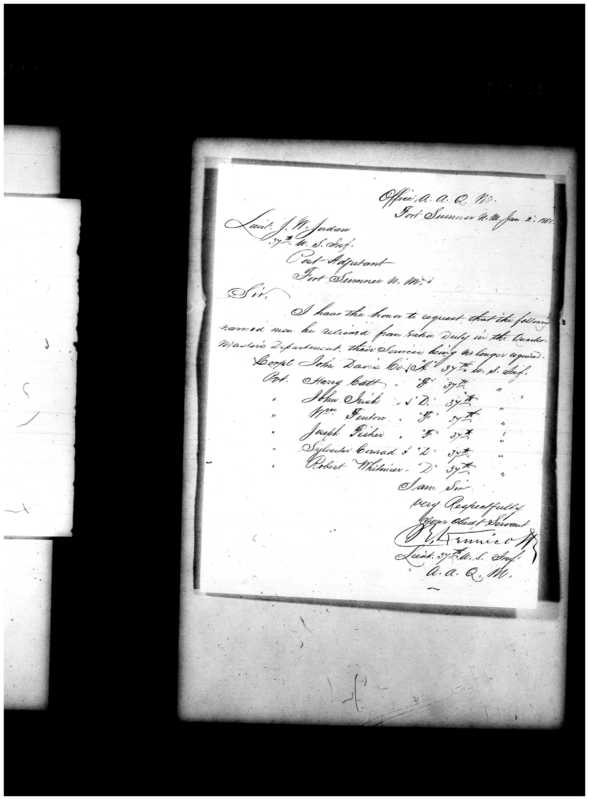 Office A. A. Q. M.
Fort Sumner N. M. Jan 2d 186
Lieut. J. W. Jordan
37th U. S. Inf.
Post Adjutant
Fort Sumner N. M.
Sir,
I have the honor to request that the following
named men be relieved from Extra Duty in the Quarter
Masters Department, their Services being no longer required.
Corpl John Davis Co. "K" 37th U. S. Inf.
Pvt. Henry " " 37th " "
" John " "D" 37th "
" Wm Fenton " " 37th "
" Joseph Fisher " " 37th "
" Sylvester Conrad " "D" 37th "
" Robert Whitmire " "D" 37th "
I am Sir
very Respectfully
Your Obedt Servant
Kennicott
Lieut. 37th U. S. Inf.
A. A. Q. M.